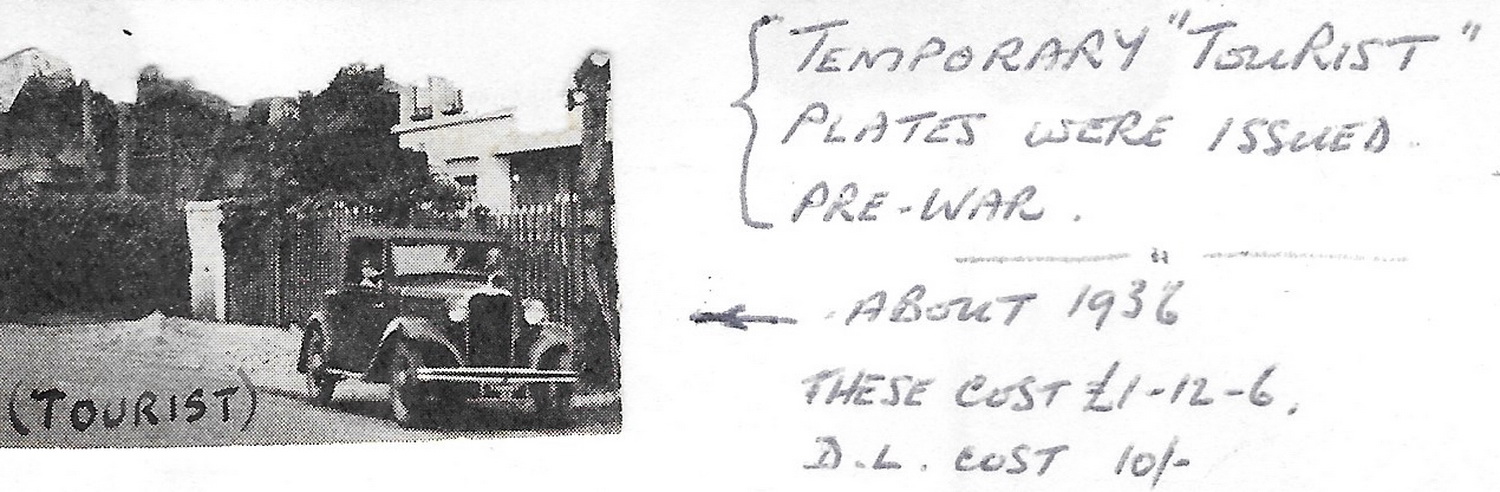 TEMPORARY "TOURIST"
PLATES WERE ISSUED
PRE-WAR.
ABOUT 1936
THESE COST £1-12-6.
D.L. COST 10/-
(TOURIST)